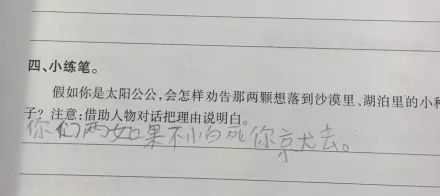 四、小练笔。
假如你是太阳公公,会怎样劝告那两颗想落到沙漠里、湖泊里的小种
子?注意:借助人物对话把理由说明白。
你们两如果不小白死你京尤去。